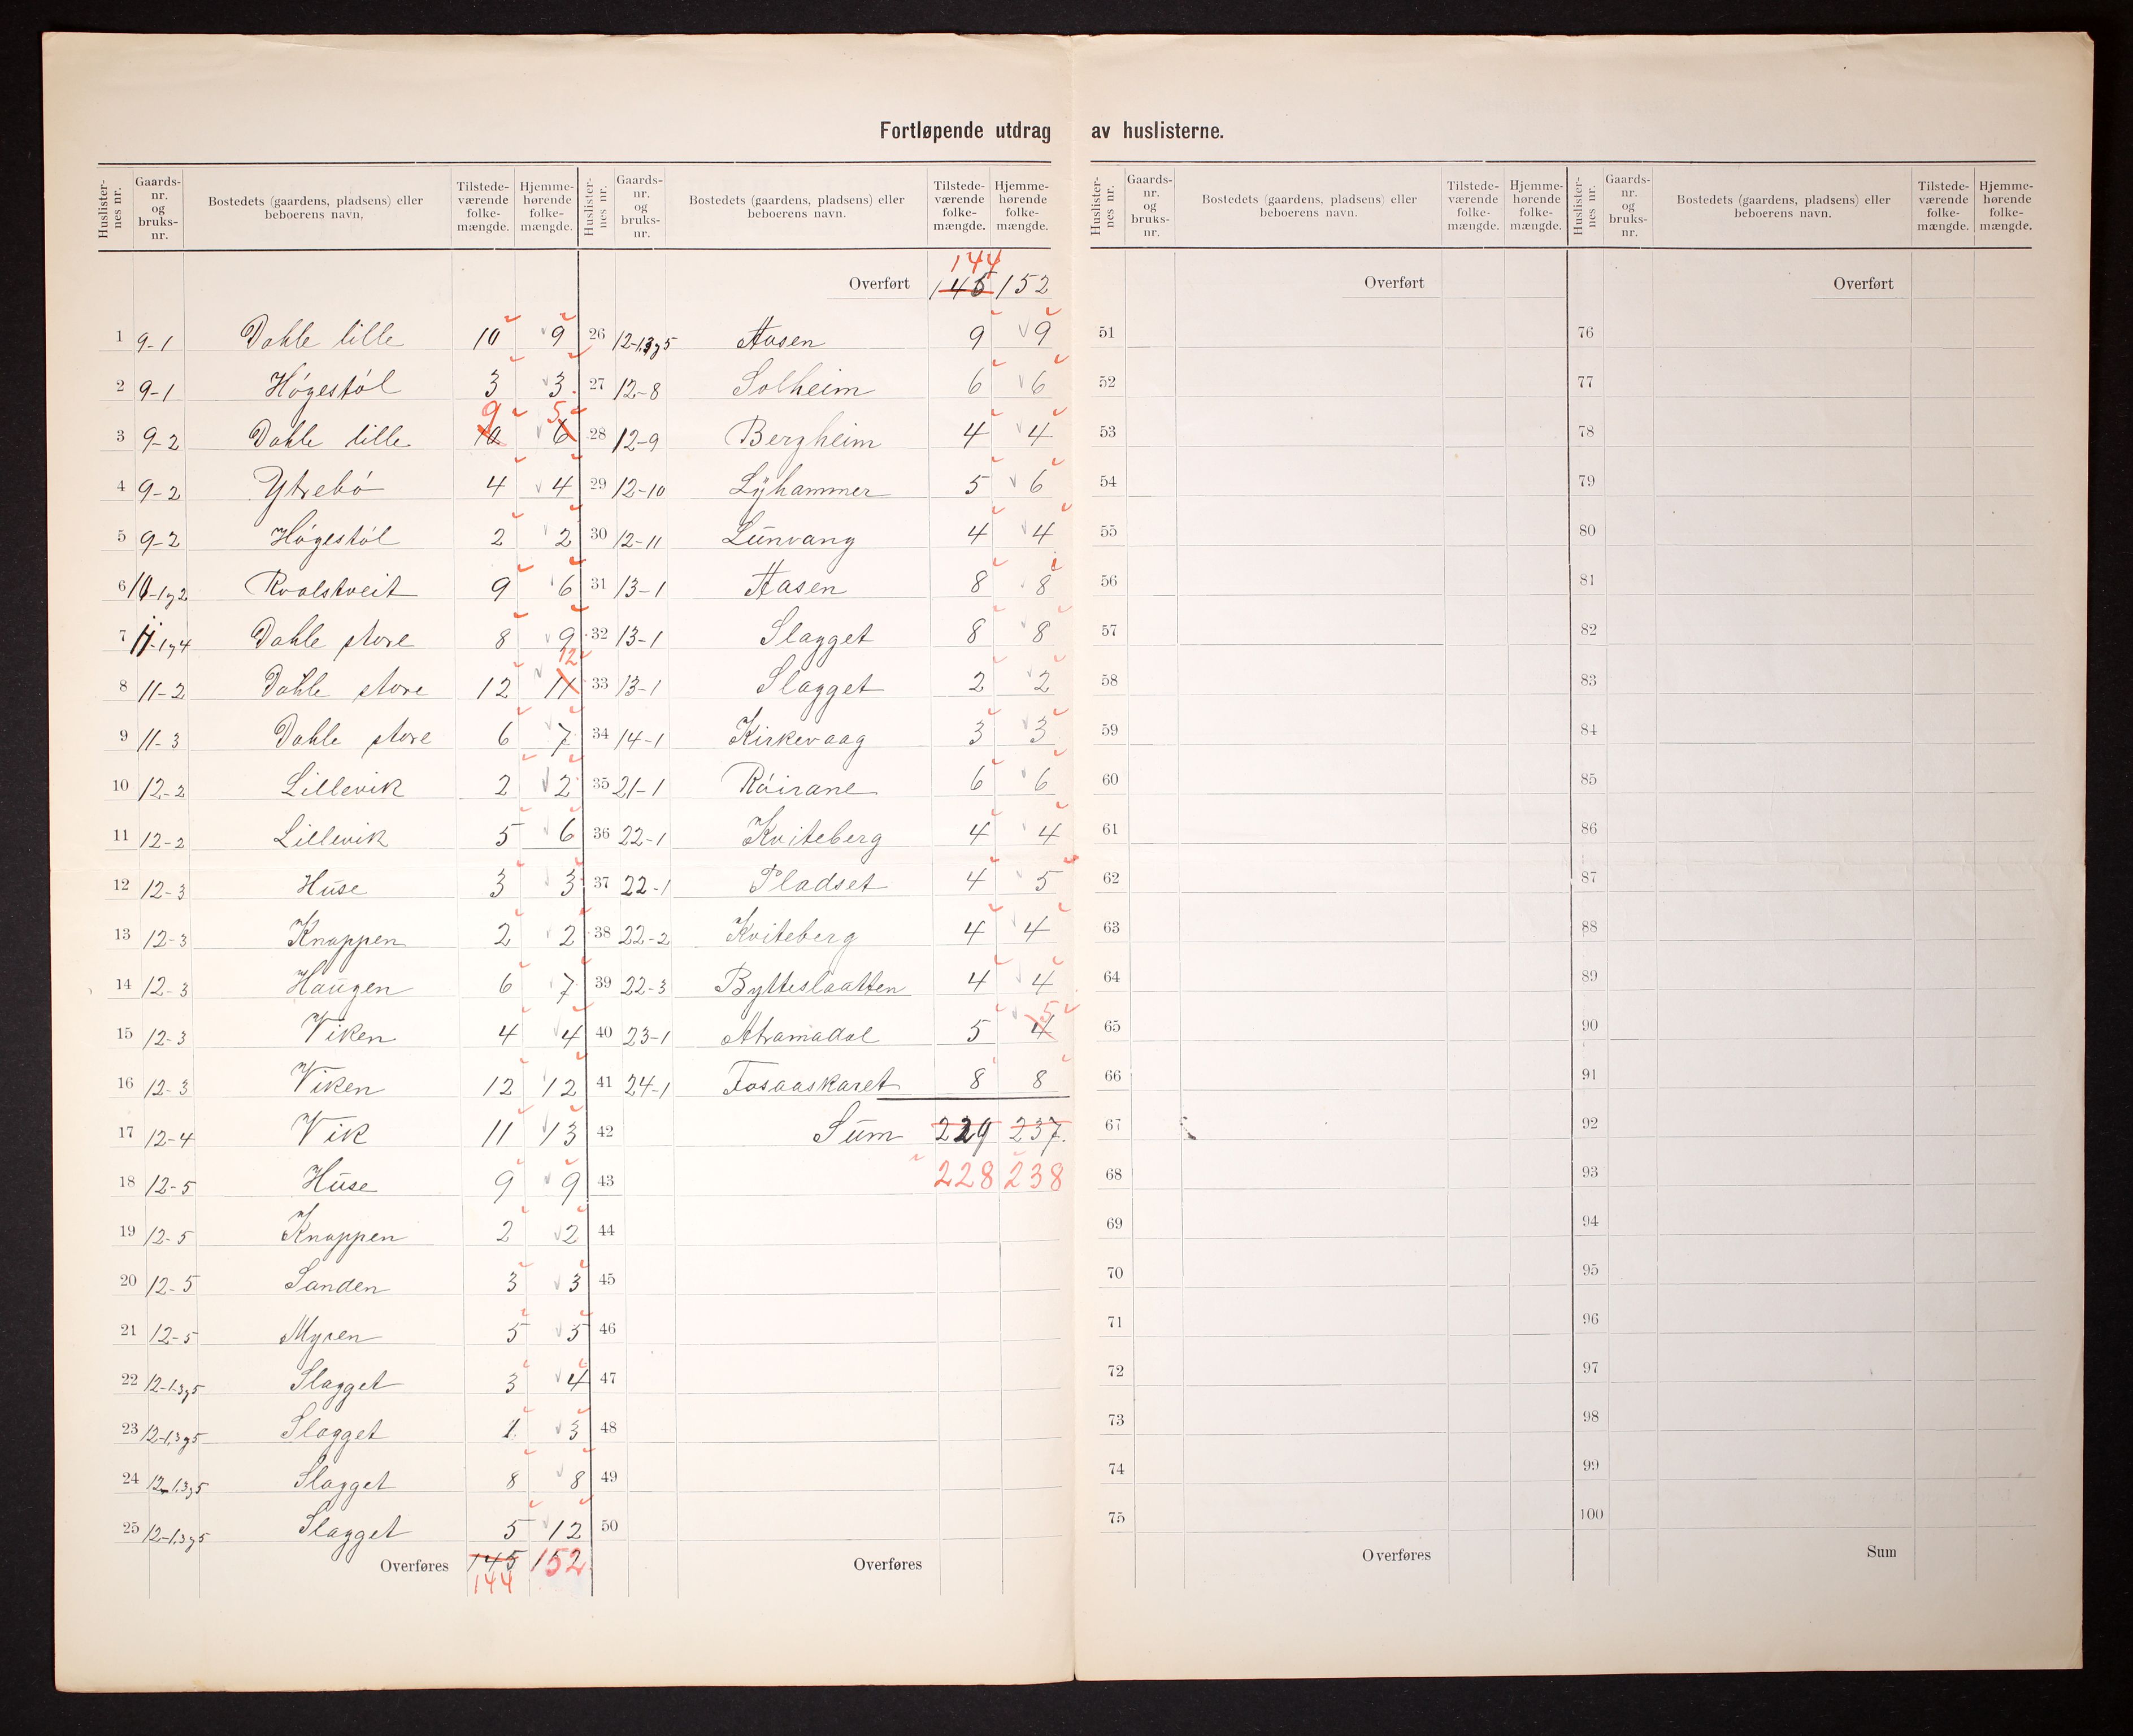 Fortløpende utdrag av huslisterne.
Huslisternes nr. Gaards-nr. og bruks-nr. Bostedets (gaardens, pladsens) eller beboerens navn. Tilstedeværende folkemængde. Hjemmehørende folkemængde.
1 9-1 Dahle lille 10 9
2 9-1 Högestöl 3 3
3 9-2 Dahle lille 10 9 6 5
4 9-2 Ytrebö 4 4
5 9-2 Högestöl 2 2
6 10-1og2 Kvalstveit 9 6
7 11-1og4 Dahle store 8 9
8 11-2 Dahle store 12 11 12
9 11-3 Dahle store 6 7
10 12-2 Lillevik 2 2
11 12-2 Lillevik 5 6
12 12-3 Huse 3 3
13 12-3 Knappen 2 2
14 12-3 Haugen 6 7
15 12-3 Viken 4 4
16 12-3 Viken 12 12
17 12-4 Vik 11 13
18 12-5 Huse 9 9
19 12-5 Knappen 2 2
20 12-5 Sanden 3 3
21 12-5 Myren 5 5
22 12-1.3og5 Slagget 3 4
23 12-1.3og5 Slagget 1 3
24 12-1.3og5 Slagget 8 8
25 12-1.3og5 Slagget 5 12
Overføres 145 152
144
Huslisternes nr. Gaards-nr. og bruks-nr. Bostedets (gaardens, pladsens) eller beboerens navn. Tilstedeværende folkemængde. Hjemmehørende folkemængde.
144
Overført 145 152
26 12-1.3og5 Aasen 9 9
27 12-8 Solheim 6 6
28 12-9 Bergheim 4 4
29 12-10 Lyhammer 5 6
30 12-11 Lunvang 4 4
31 13-1 Aasen 8 8
32 13-1 Slagget 8 8
33 13-1 Slagget 2 2
34 14-1 Kirkevaag 3 3
35 21-1 Röirane 6 6
36 22-1 Kviteberg 4 4
37 22-1 Pladset 4 5
38 22-2 Kviteberg 4 4
39 22-3 Bytteslaatten 4 4
40 23-1 Atramadal 5 4 5
41 24-1 Fosaaskaret 8 8
42 Sum 229 237.
43 228 238
44
45
46
47
48
49
50
Overføres
Huslisternes nr. Gaards-nr. og bruks-nr. Bostedets (gaardens, pladsens) eller beboerens navn. Tilstedeværende folkemængde. Hjemmehørende folkemængde.
Overført
51
52
53
54
55
56
57
58
59
60
61
62
63
64
65
66
67
68
69
70
71
72
73
74
75
Overføres
Huslisternes nr. Gaards-nr. og bruks-nr. Bostedets (gaardens, pladsens) eller beboerens navn. Tilstedeværende folkemængde. Hjemmehørende folkemængde.
Overført
76
77
78
79
80
81
82
83
84
85
86
87
88
89
90
91
92
93
94
95
96
97
98
99
100
Sum